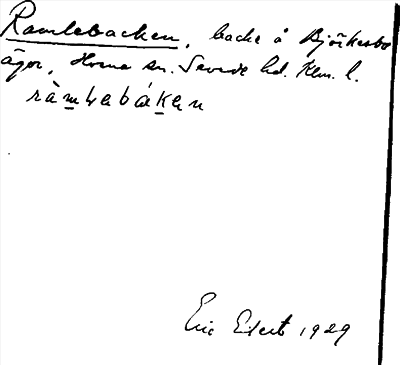 Ramlebacken, backe å Björkesbo
ägor, Horna sn. Sevede hd. Klm. l.
ràmḷabákan
Eric Elert 1929